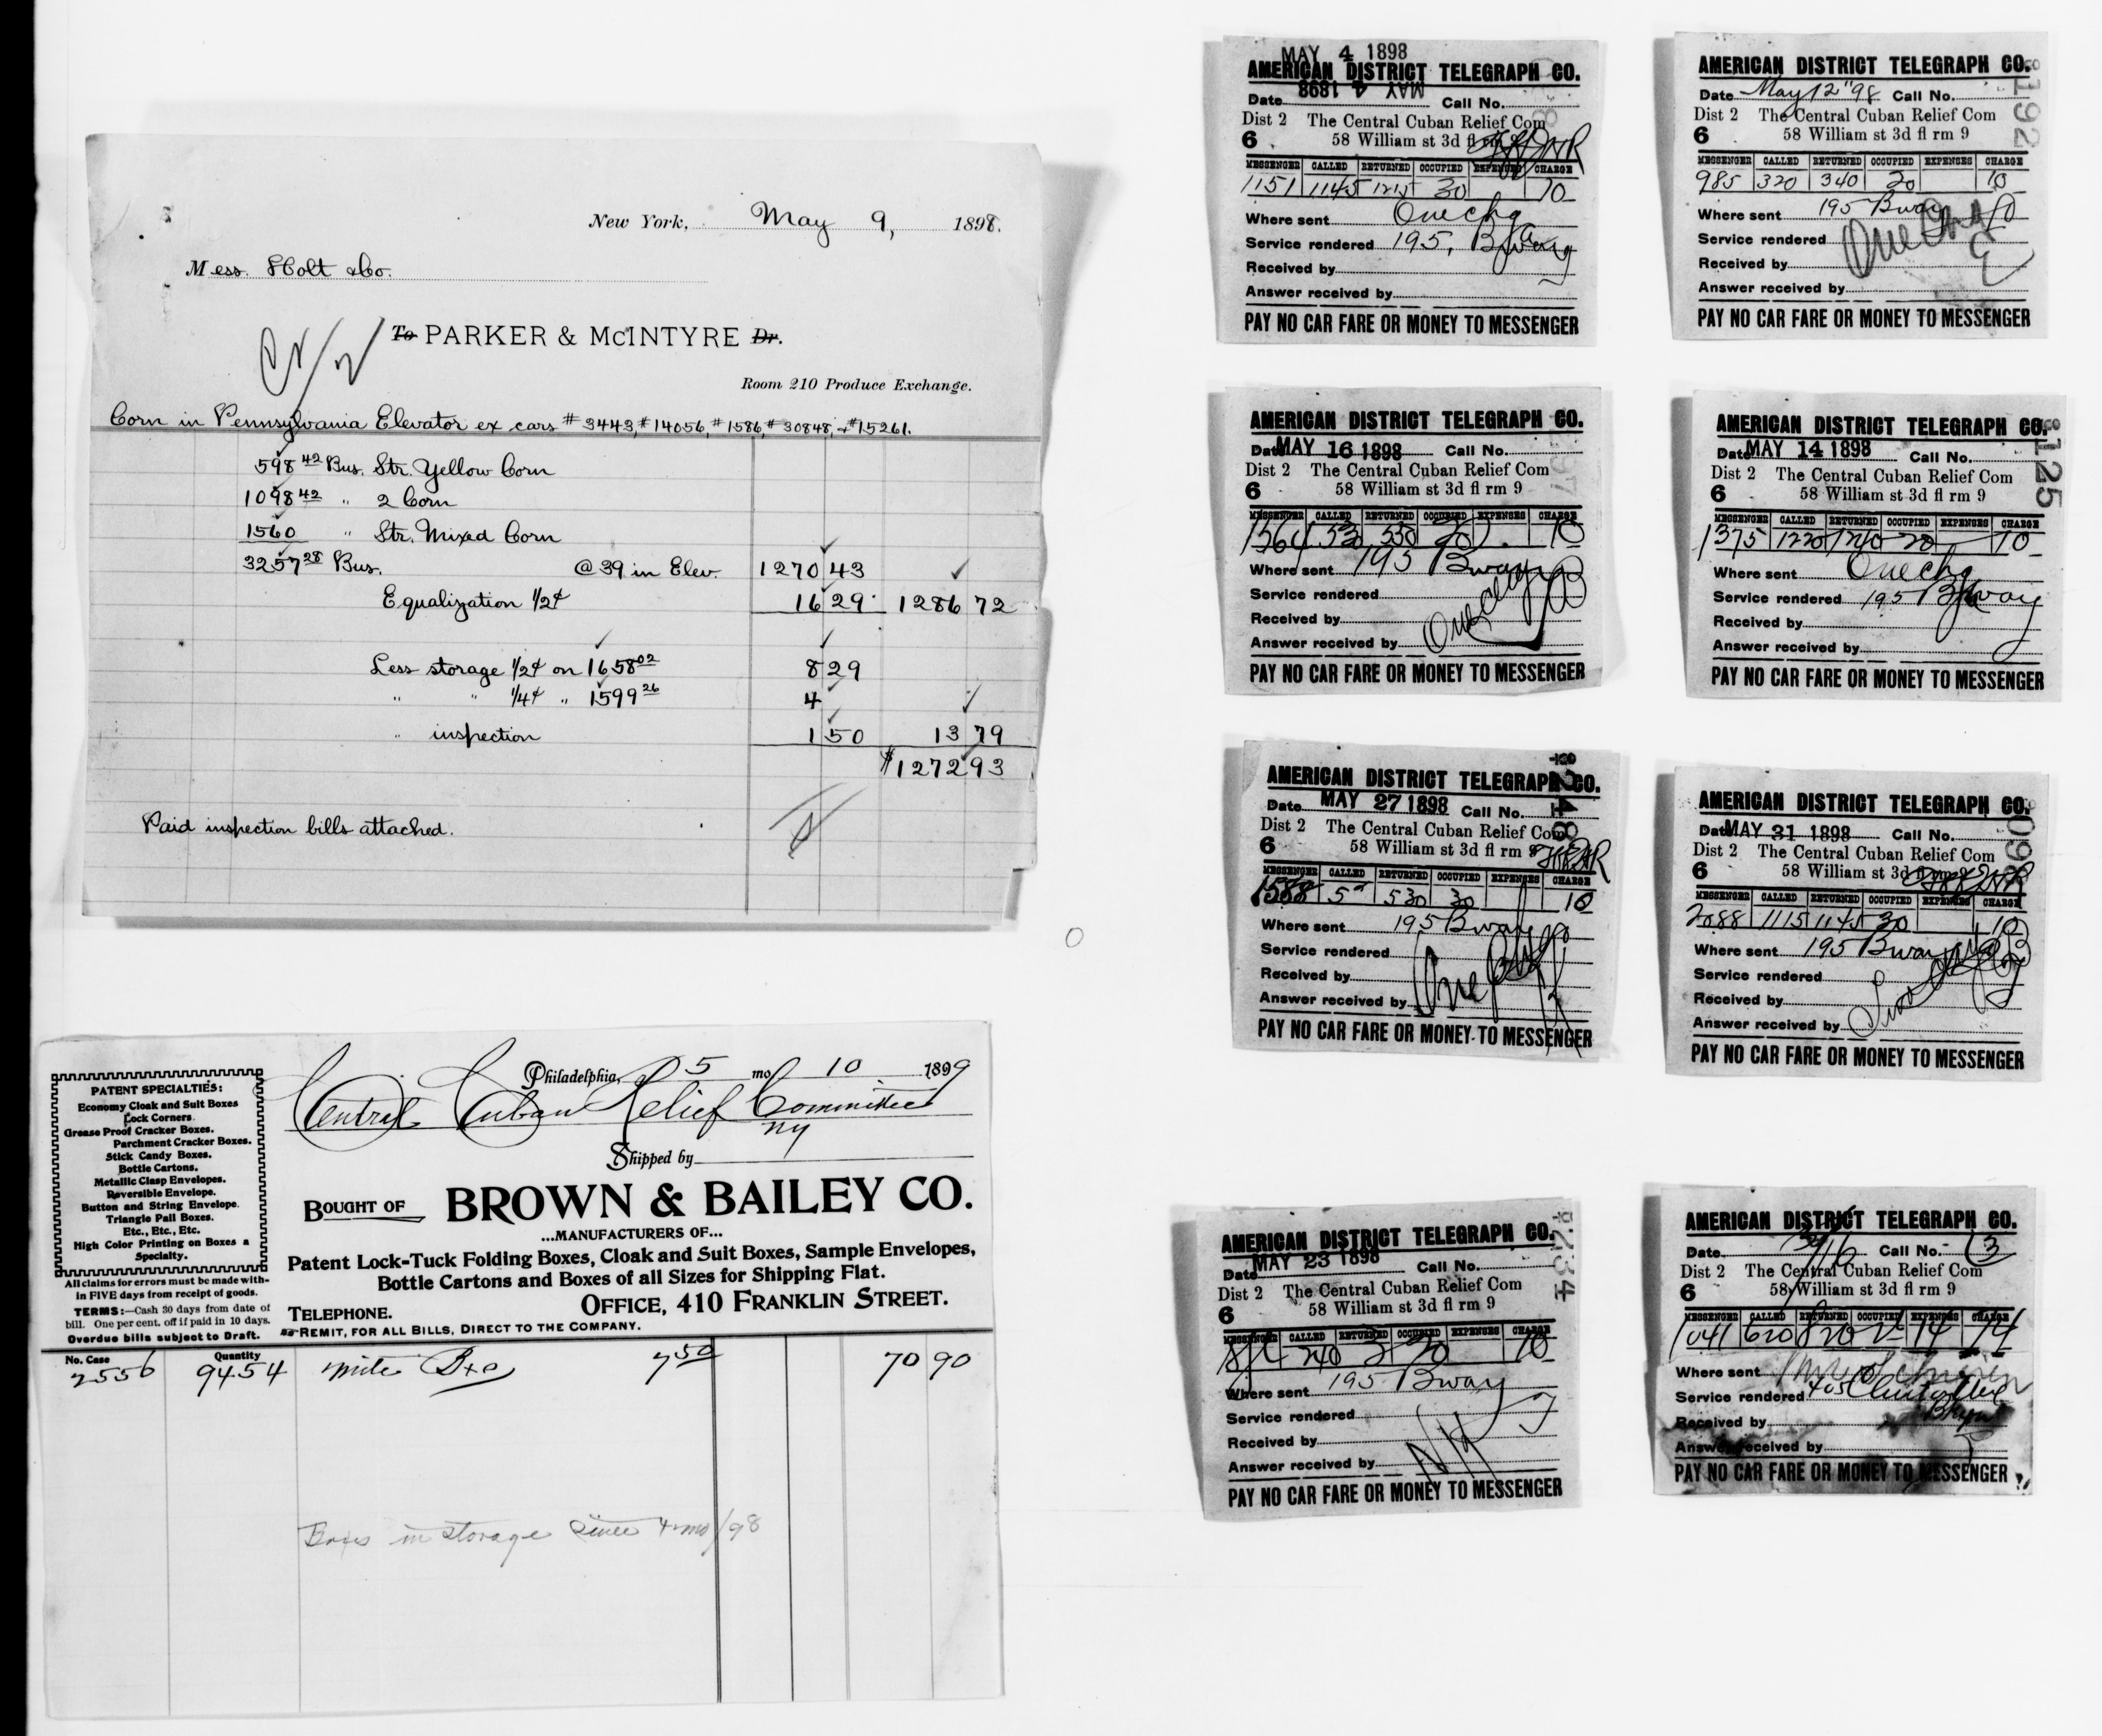 New York, May 9, 1898.
Mess. Holt & Co.
To PARKER & McINTYRE Dr.
Room 210 Produce Exchange.
Corn in Pennsylvania Elevator ex cars #3443, #14056, #1586, #30848, & #15261.
598 42 Bus. Str. Yellow Corn
1098 42 " 2 Corn
1560 " Str. Mixed Corn
3257 28 Bus. @ 39 in Elev. 1270 43
Equalization 1/2¢ 16 29 1286 72
Less storage 1/2¢ on 1658 02 8 29
" " 1/4¢ " 1599 26 4
" inspection 1 50 13 79
$1272 93
Paid inspection bills attached.
PATENT SPECIALTIES:
Economy Cloak and Suit Boxes
Lock Corners.
Grease Proof Cracker Boxes.
Parchment Cracker Boxes.
Stick Candy Boxes.
Bottle Cartons.
Metallic Clasp Envelopes.
Reversible Envelope.
Button and String Envelope.
Triangle Pail Boxes.
Etc., Etc., Etc.
High Color Printing on Boxes a
Specialty.
All claims for errors must be made with-
in FIVE days from receipt of goods.
TERMS:—Cash 30 days from date of
bill. One per cent. off if paid in 10 days.
Overdue bills subject to Draft.
Philadelphia, 5 mo 10 1899
Central Cuban Relief Committee
NY
Shipped by
BOUGHT OF BROWN & BAILEY CO.
...MANUFACTURERS OF...
Patent Lock-Tuck Folding Boxes, Cloak and Suit Boxes, Sample Envelopes,
Bottle Cartons and Boxes of all Sizes for Shipping Flat.
TELEPHONE. OFFICE, 410 FRANKLIN STREET.
REMIT, FOR ALL BILLS, DIRECT TO THE COMPANY.
No. Case Quantity
2556 9454 Mite Bxs 7 50 70 90
Boxes in storage since 4 mo/98
MAY 4 1898
AMERICAN DISTRICT TELEGRAPH CO.
Date MAY 4 1898 Call No.
Dist 2 The Central Cuban Relief Com
6 58 William st 3d fl rm 9
MESSENGER CALLED RETURNED OCCUPIED EXPENSES CHARGE
1151 1145 1215 30 10
Where sent One chg
Service rendered 195, Bway
Received by
Answer received by
PAY NO CAR FARE OR MONEY TO MESSENGER
AMERICAN DISTRICT TELEGRAPH CO.
Date May 12" 98 Call No.
8192
Dist 2 The Central Cuban Relief Com
6 58 William st 3d fl rm 9
MESSENGER CALLED RETURNED OCCUPIED EXPENSES CHARGE
985 320 340 20 10
Where sent 195 Bway
Service rendered One Chg
Received by
Answer received by
PAY NO CAR FARE OR MONEY TO MESSENGER
AMERICAN DISTRICT TELEGRAPH CO.
Date MAY 16 1898 Call No.
Dist 2 The Central Cuban Relief Com
6 58 William st 3d fl rm 9
MESSENGER CALLED RETURNED OCCUPIED EXPENSES CHARGE
1564 530 550 20 10
Where sent 195 Bway
Service rendered
Received by One chg
Answer received by
PAY NO CAR FARE OR MONEY TO MESSENGER
AMERICAN DISTRICT TELEGRAPH CO.
Date MAY 14 1898 Call No.
8125
Dist 2 The Central Cuban Relief Com
6 58 William st 3d fl rm 9
MESSENGER CALLED RETURNED OCCUPIED EXPENSES CHARGE
1375 1220 1240 20 10
Where sent One chg
Service rendered 195 Bway
Received by
Answer received by
PAY NO CAR FARE OR MONEY TO MESSENGER
AMERICAN DISTRICT TELEGRAPH CO.
Date MAY 27 1898 Call No.
Dist 2 The Central Cuban Relief Com
6 58 William st 3d fl rm 9
MESSENGER CALLED RETURNED OCCUPIED EXPENSES CHARGE
1588 5 530 30 10
Where sent 195 Bway
Service rendered
Received by One
Answer received by
PAY NO CAR FARE OR MONEY TO MESSENGER
AMERICAN DISTRICT TELEGRAPH CO.
Date MAY 31 1898 Call No.
Dist 2 The Central Cuban Relief Com
6 58 William st 3d fl rm 9
MESSENGER CALLED RETURNED OCCUPIED EXPENSES CHARGE
2088 1115 1145 30 10
Where sent 195 Bway
Service rendered
Received by
Answer received by
PAY NO CAR FARE OR MONEY TO MESSENGER
AMERICAN DISTRICT TELEGRAPH CO.
Date MAY 23 1898 Call No.
Dist 2 The Central Cuban Relief Com
6 58 William st 3d fl rm 9
MESSENGER CALLED RETURNED OCCUPIED EXPENSES CHARGE
240 3 20 10
Where sent 195 Bway
Service rendered
Received by
Answer received by
PAY NO CAR FARE OR MONEY TO MESSENGER
AMERICAN DISTRICT TELEGRAPH CO.
Date Call No. 3
Dist 2 The Central Cuban Relief Com
6 58 William st
MESSENGER CALLED RETURNED OCCUPIED EXPENSES CHARGE
1041 620 820 2 14 74
Where sent
Service rendered 405 Clinton Ave
Received by Bklyn
Answer received by
PAY NO CAR FARE OR MONEY TO MESSENGER